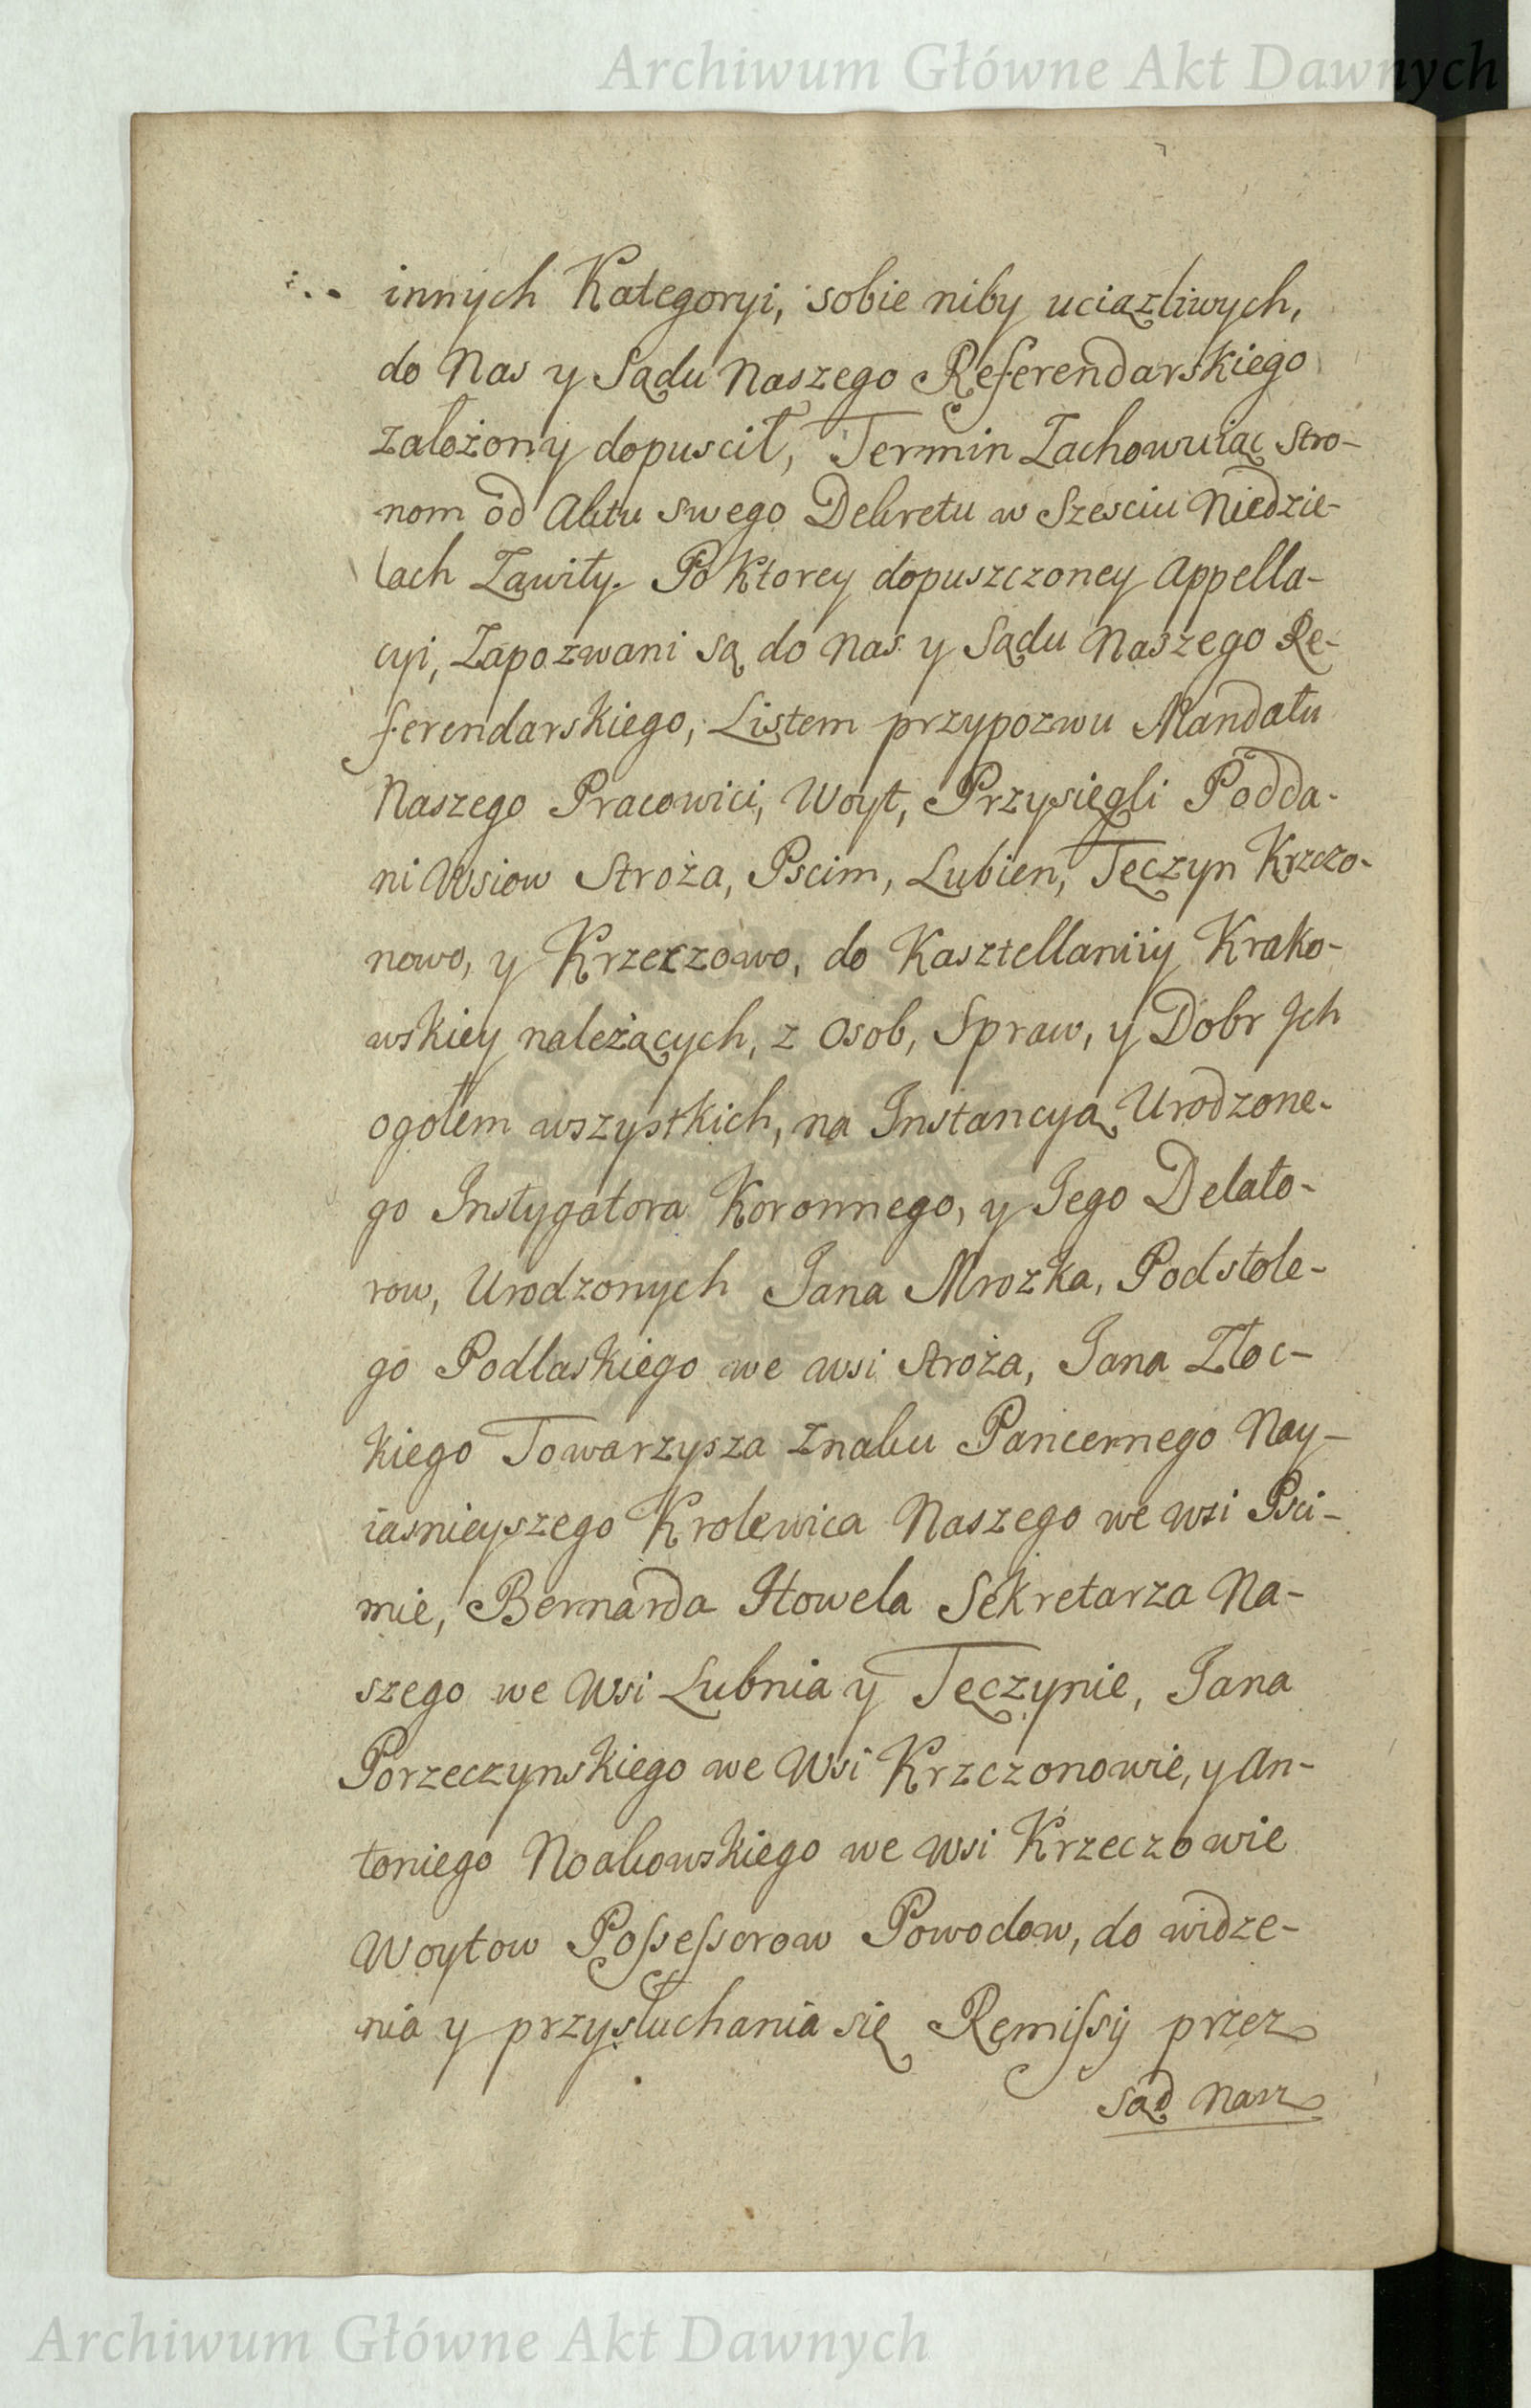 Archiwum Główne Akt Dawnych
innych Kategoryi, sobie niby uciązliwych,
do Nas y Sądu Naszego Referendarskiego
założony dopuscił, Termin Zachowuiąc Stro-
nom od Aktu swego Dekretu w Szesciu Niedzie-
lach Zawity. Po Ktorey dopuszczoney Appella-
cyi, Zapozwani są do Nas y Sądu Naszego Re-
ferendarskiego, Listem przypozwu Mandatu
Naszego Pracowici, Woyt, Przysięgli Podda-
ni Wsiow Stroża, Pscim, Lubien, Tęczyn Krzczo-
nowo, y Krzeczowo, do Kasztellaniiy Krako-
wskiey należących, z Osob, Spraw, y Dobr Jch
ogołem wszystkich, na Jnstancyą Urodzone-
go Jnstygatora Koronnego, y Jego Delato-
row, Urodzonych Jana Mrozka, Podstole-
go Podlaskiego we wsi Stroża, Jana Złoc-
kiego Towarzysza Znaku Pancernego Nay-
iasnieyszego Krolewica Naszego we wsi Psci-
mie, Bernarda Howela Sekretarza Na-
szego we Wsi Lubnia y Tęczynie, Jana
Porzeczynskiego we Wsi Krzczonowie, y An-
toniego Noakowskiego we wsi Krzeczowie
Woytow Possessorow Powodow, do widze-
nia y przysłuchania się Remissij przez
Sąd Nasz
Archiwum Główne Akt Dawnych